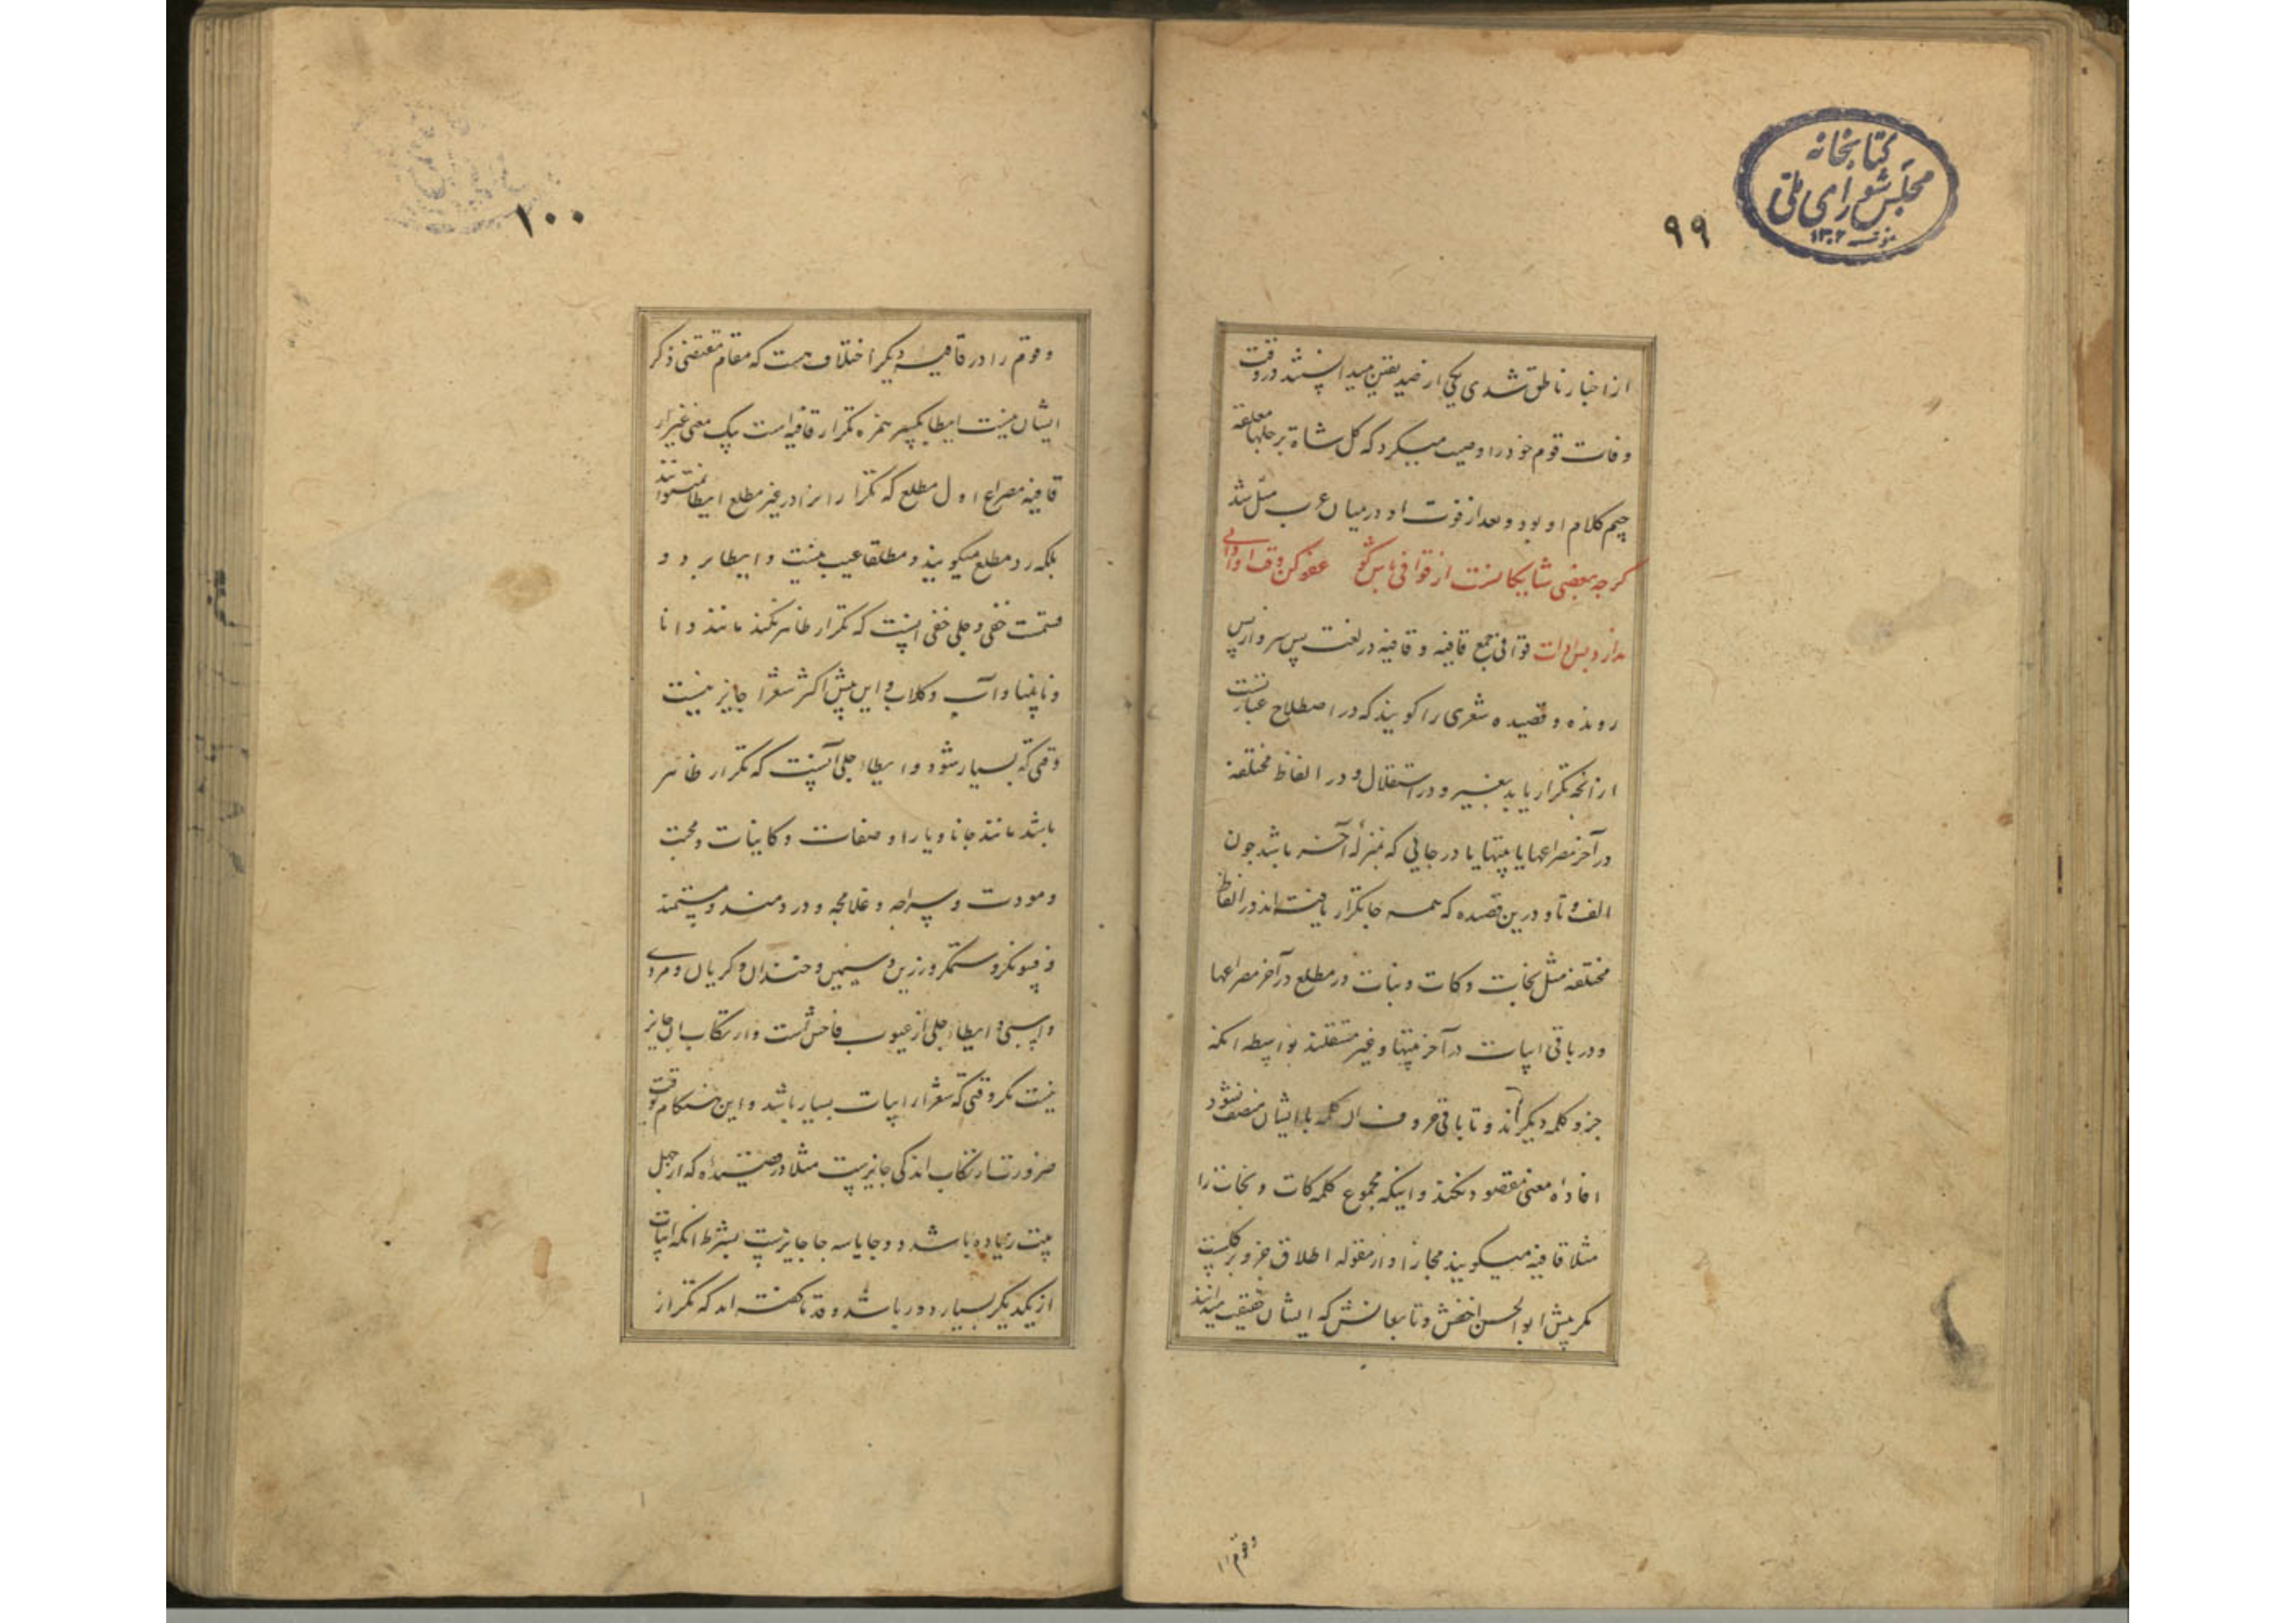 کتابخانه
مجلس شورای ملی
۱۳۰۲
۹۹
از اخبار ناطق شدی یکی از ضد یقین میدانستند در وقت
وفات قوم خود را وصیت میکرد که کل شاة برجلها معلقة
کلام او بود و بعد از فوت او در میان عرب مثل شد
کرچه بعضی شایکانست از قوافی باش کو عفو کن وقت ادا
قوافی جمع قافیه و قافیه در لغت پس سر و از پس
رونده و قصیده شعری را کویند که در اصطلاح عبارتست
از آنچه تکرار یابد بغیر و در استقلال و در الفاظ مختلفه
در آخر مصراعها یا بیتها یا در جایی که بمنزلهٔ آخر باشد چون
الف و تا و درین قصیده که همه جا تکرار یافته‌اند در الفاظ
مختلفه مثل نجات و کات و نبات در مطلع در آخر مصراعها
و در باقی ابیات در آخر بیتها و غیر مستقلند بواسطه انکه
جزو کلمه دیکراند و تا باقی حروف ان کلمه با ایشان منضم نشود
افادهٔ معنی مقصود نکند و اینکه مجموع کلمه کات و نجات را
مثلا قافیه میکویند مجازا و از مقوله اطلاق جزو بر کلست
مکر پیش ابو الحسن اخفش و تابعانش که ایشان حقیقت میدانند
وقوم را
۱۰۰
وقوم را در قافیه دیکر اختلاف هست که مقام مقتضی ذکر
ایشان نیست ایطا بکسر همزه تکرار قافیه است بیک معنی غیر از
قافیه مصراع اول مطلع که تکرار انرا در غیر مطلع ایطا نمیتوانند
بلکه رد مطلع میکویند و مطلقا عیب نیست و ایطا بر دو
قسمت خفی و جلی خفی انست که تکرار ظاهر نکند مانند دانا
و نابینا و آب و کلاب و این پیش اکثر شعرا جایز نیست
وقتی که بسیار شود و ایطاء جلی آنست که تکرار ظاهر
باشد مانند جانا و یارا و صفات و کاینات و محبت
و مودت و سراچه و غلامچه و دردمند و مستمند
و فسونکر و ستمکر و زرین و سیمین و خندان و کریان و مردی
و اسبی و ایطاء جلی از عیوب فاحش است و ارتکاب ان جایز
نیست مکر وقتی که شعر را ابیات بسیار باشد و این هنکام بوقت
ضرورت ارتکاب اندکی جایزست مثلا در قصیده که از چهل
بیت زیاده باشد دو جا یا سه جا جایزست بشرط انکه ابیات
از یکدیکر بسیار دور باشد و قدما کفته‌اند که تکرار